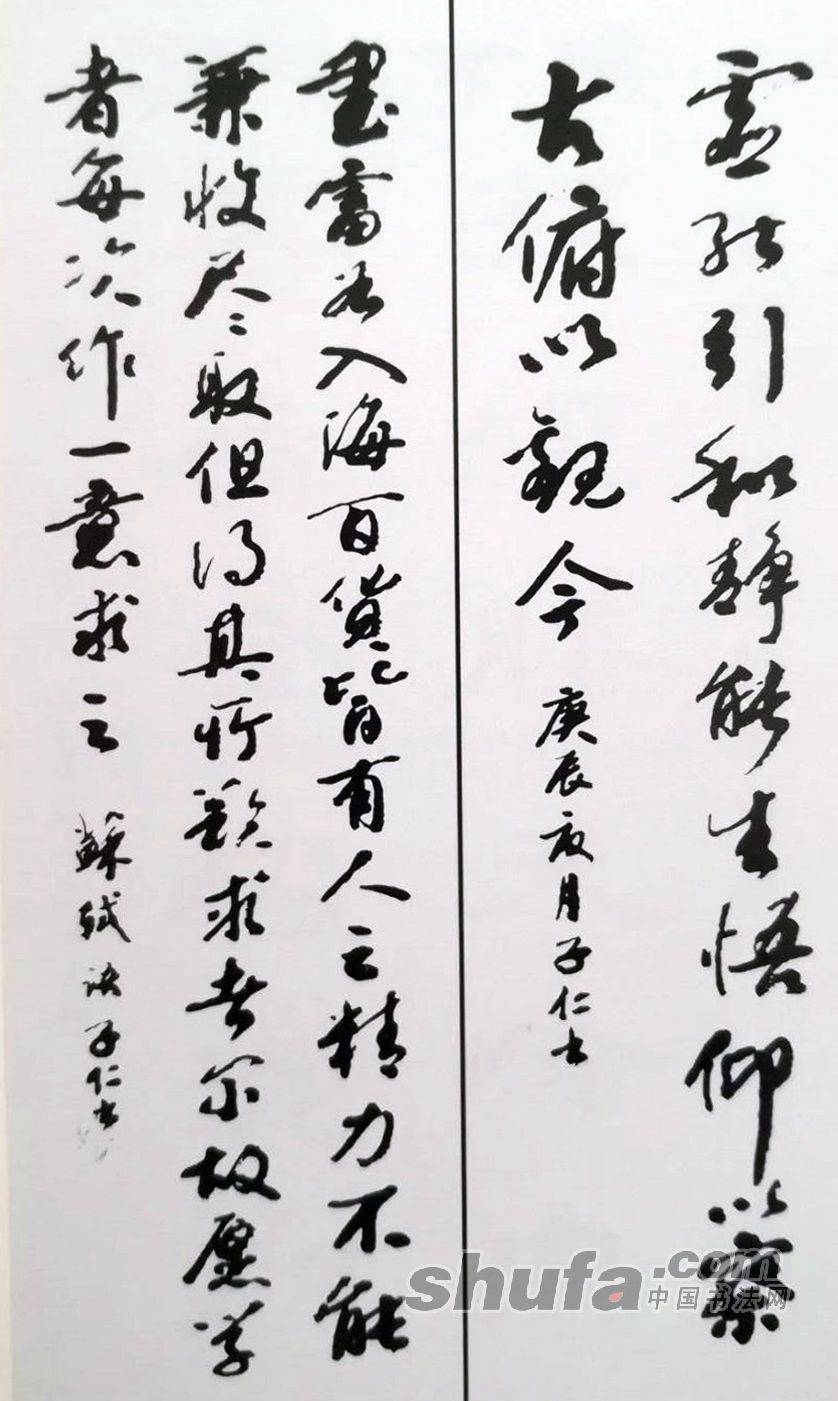 虚能引和靜能生悟仰以察
古俯以觀今 庚辰夏月子仁书
書富如入海百貨皆有人之精力不能
兼收尽取但得其所欲求者尔故愿学
者每次作一意求之 蘇軾语子仁书
shufa.com
中国书法网